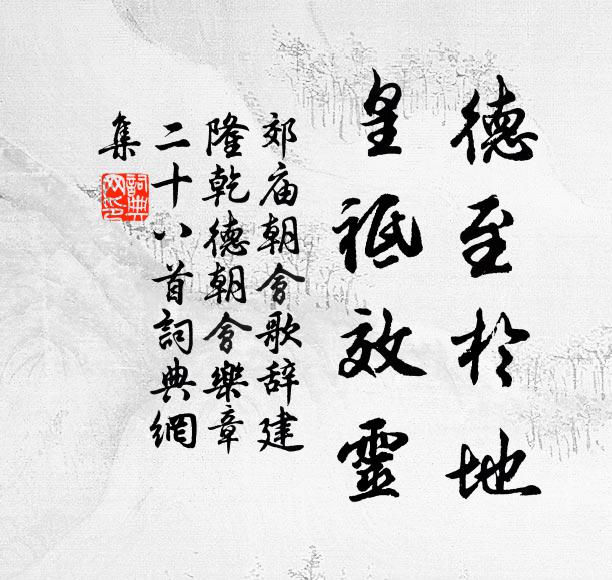 德至於地
皇祗效靈
郊庙朝會歌辞建
隆乾德朝會樂章
二十八首詞典網
集
詞典網印